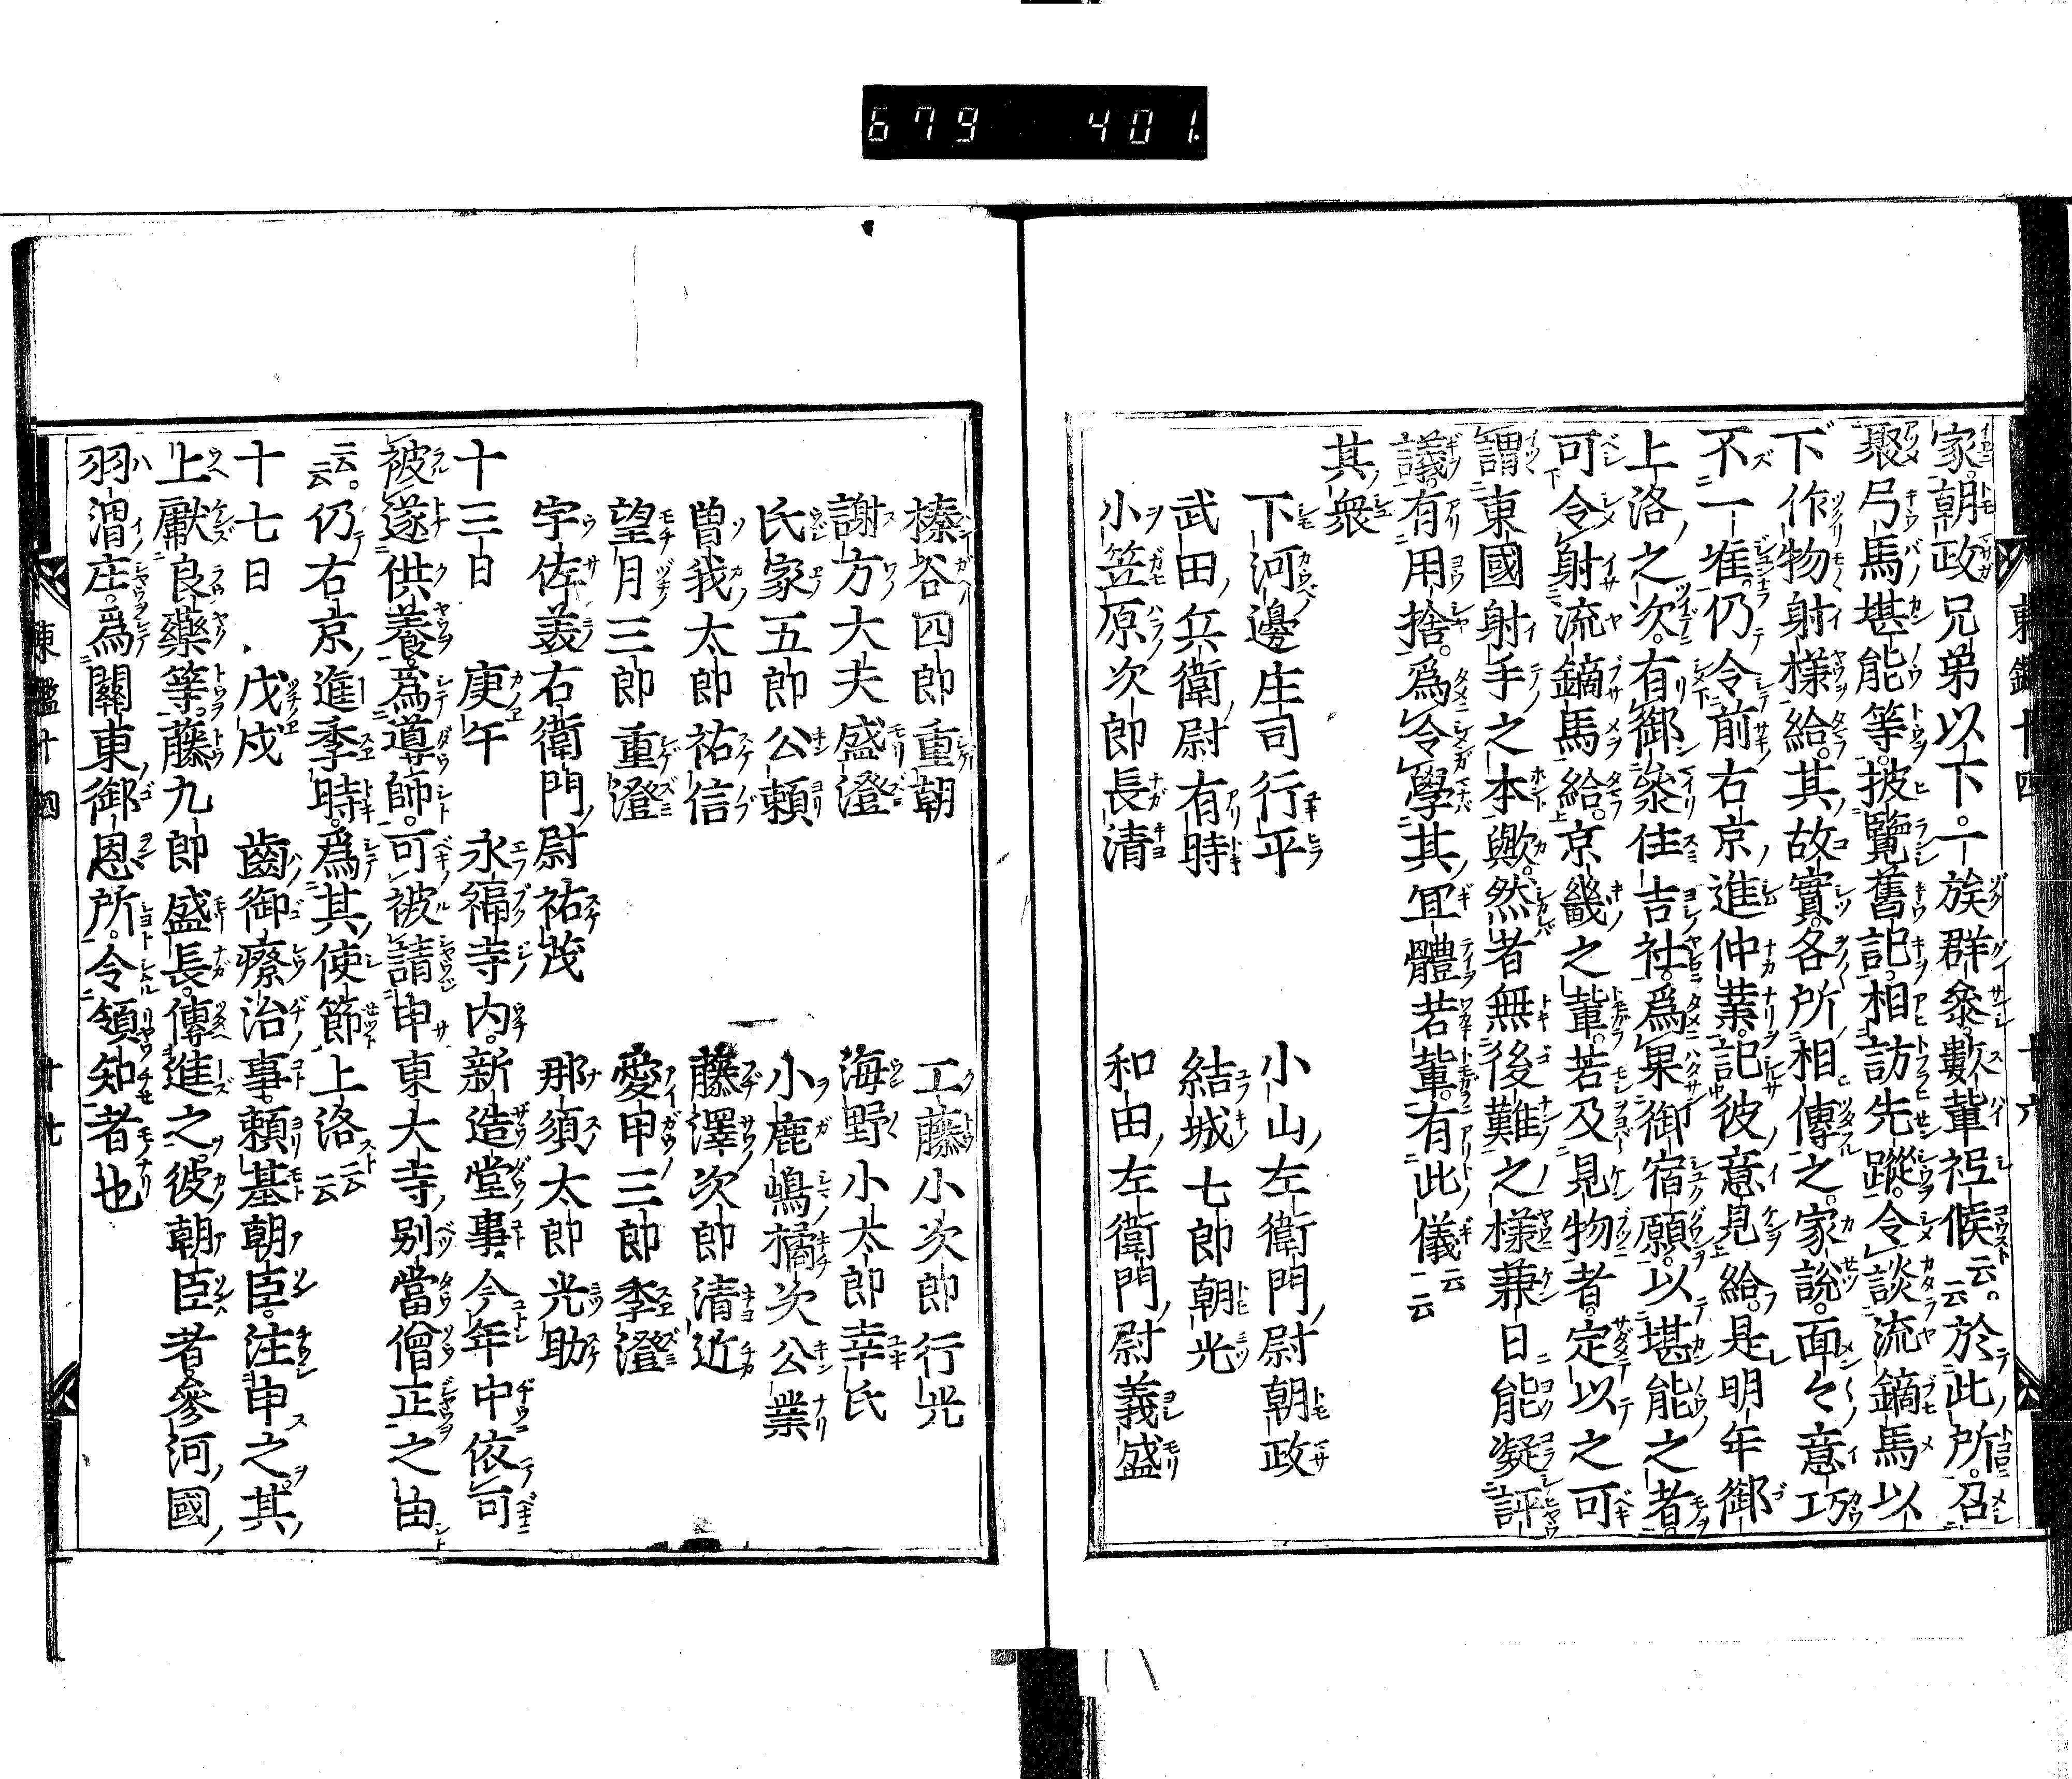 679 401
東鑑十四 十六
家。朝政兄弟以下。一族群參。數輩祗候云云。於此所。召
聚弓馬堪能等。披覽舊記。相訪先蹤。令談流鏑馬以
下作物射樣給。其故實。各所相傳之。家說。面々意巧
不一准。仍令前右京進仲業。記彼意見給。是明年御
上洛之次。有御參住吉社。爲果御宿願。以堪能之者。
可令射流鏑馬給。京畿之輩。若及見物者。定以之可
謂東國射手之本歟。然者無後難之樣兼日能凝評
議。有用捨。爲令學其冝體若輩。有此儀云云
其衆
下河邊庄司行平 小山左衛門尉朝政
武田兵衛尉有時 結城七郎朝光
小笠原次郎長清 和田左衛門尉義盛
榛谷四郎重朝 工藤小次郎行光
諏方大夫盛澄 海野小太郎幸氏
氏家五郎公頼 小鹿嶋橘次公業
曽我太郎祐信 藤澤次郎清近
望月三郎重澄 愛甲三郎季澄
宇佐美右衛門尉祐茂 那須太郎光助
十三日 庚午 永福寺内。新造堂事。今年中依可
被遂供養。爲導師。可被請申東大寺別當僧正之由
云云。仍右京進季時。爲其使節上洛云云
十七日 戊戌 齒御療治事。頼基朝臣。注申之。其
上獻良藥等。藤九郎盛長。傳進之。彼朝臣者參河國
羽渭庄。爲關東御恩所。令領知者也
東鑑十四 十七